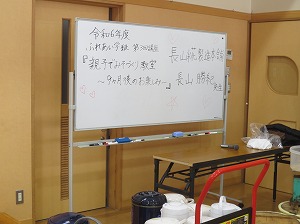 令和6年度
ふれあい学校 第3回講座
『親子でみそづくり教室
～9ヶ月後のお楽しみ～』
長山糀製造本舗
長山 勝紀 先生